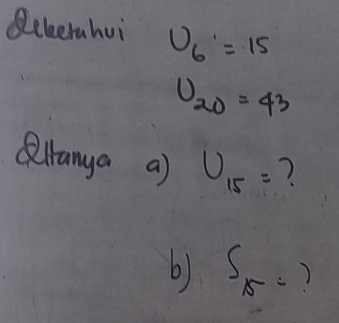 Diketahui U₆ = 15
U₂₀ = 43
Ditanya a) U₁₅ = ?
b) S₁₅ = ?